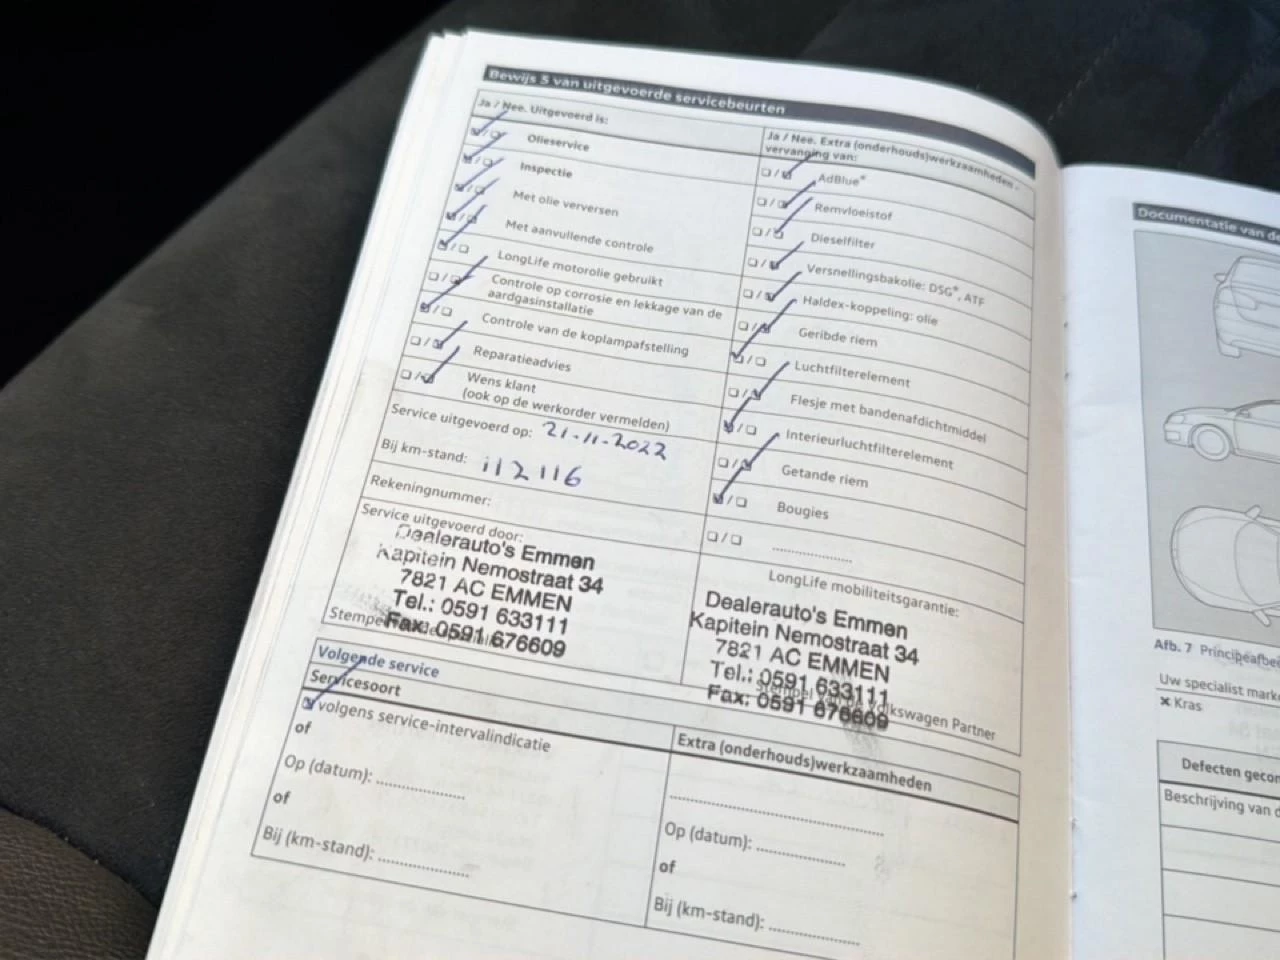 Bewijs 5 van uitgevoerde servicebeurten
Ja / Nee. Uitgevoerd is:
Olieservice
Inspectie
Met olie verversen
Met aanvullende controle
LongLife motorolie gebruikt
Controle op corrosie en lekkage van de
aardgasinstallatie
Controle van de koplampafstelling
Reparatieadvies
Wens klant
(ook op de werkorder vermelden)
Service uitgevoerd op: 21-11-2022
Bij km-stand: 112116
Rekeningnummer:
Service uitgevoerd door:
Dealerauto's Emmen
Kapitein Nemostraat 34
7821 AC EMMEN
Tel.: 0591 633111
Fax: 0591 676609
Ja / Nee. Extra (onderhouds)werkzaamheden -
vervanging van:
AdBlue®
Remvloeistof
Dieselfilter
Versnellingsbakolie: DSG®, ATF
Haldex-koppeling: olie
Geribde riem
Luchtfilterelement
Flesje met bandenafdichtmiddel
Interieurluchtfilterelement
Getande riem
Bougies
....................
LongLife mobiliteitsgarantie:
Dealerauto's Emmen
Kapitein Nemostraat 34
7821 AC EMMEN
Tel.: 0591 633111
Fax: 0591 676609
Stempel van de Volkswagen Partner
Volgende service
Servicesoort
volgens service-intervalindicatie
of
Op (datum): ....................
of
Bij (km-stand): ....................
Extra (onderhouds)werkzaamheden
................................................
Op (datum): ....................
of
Bij (km-stand): ....................
Documentatie van de
Afb. 7
Uw specialist
× Kras
Defecten
Beschrijving van